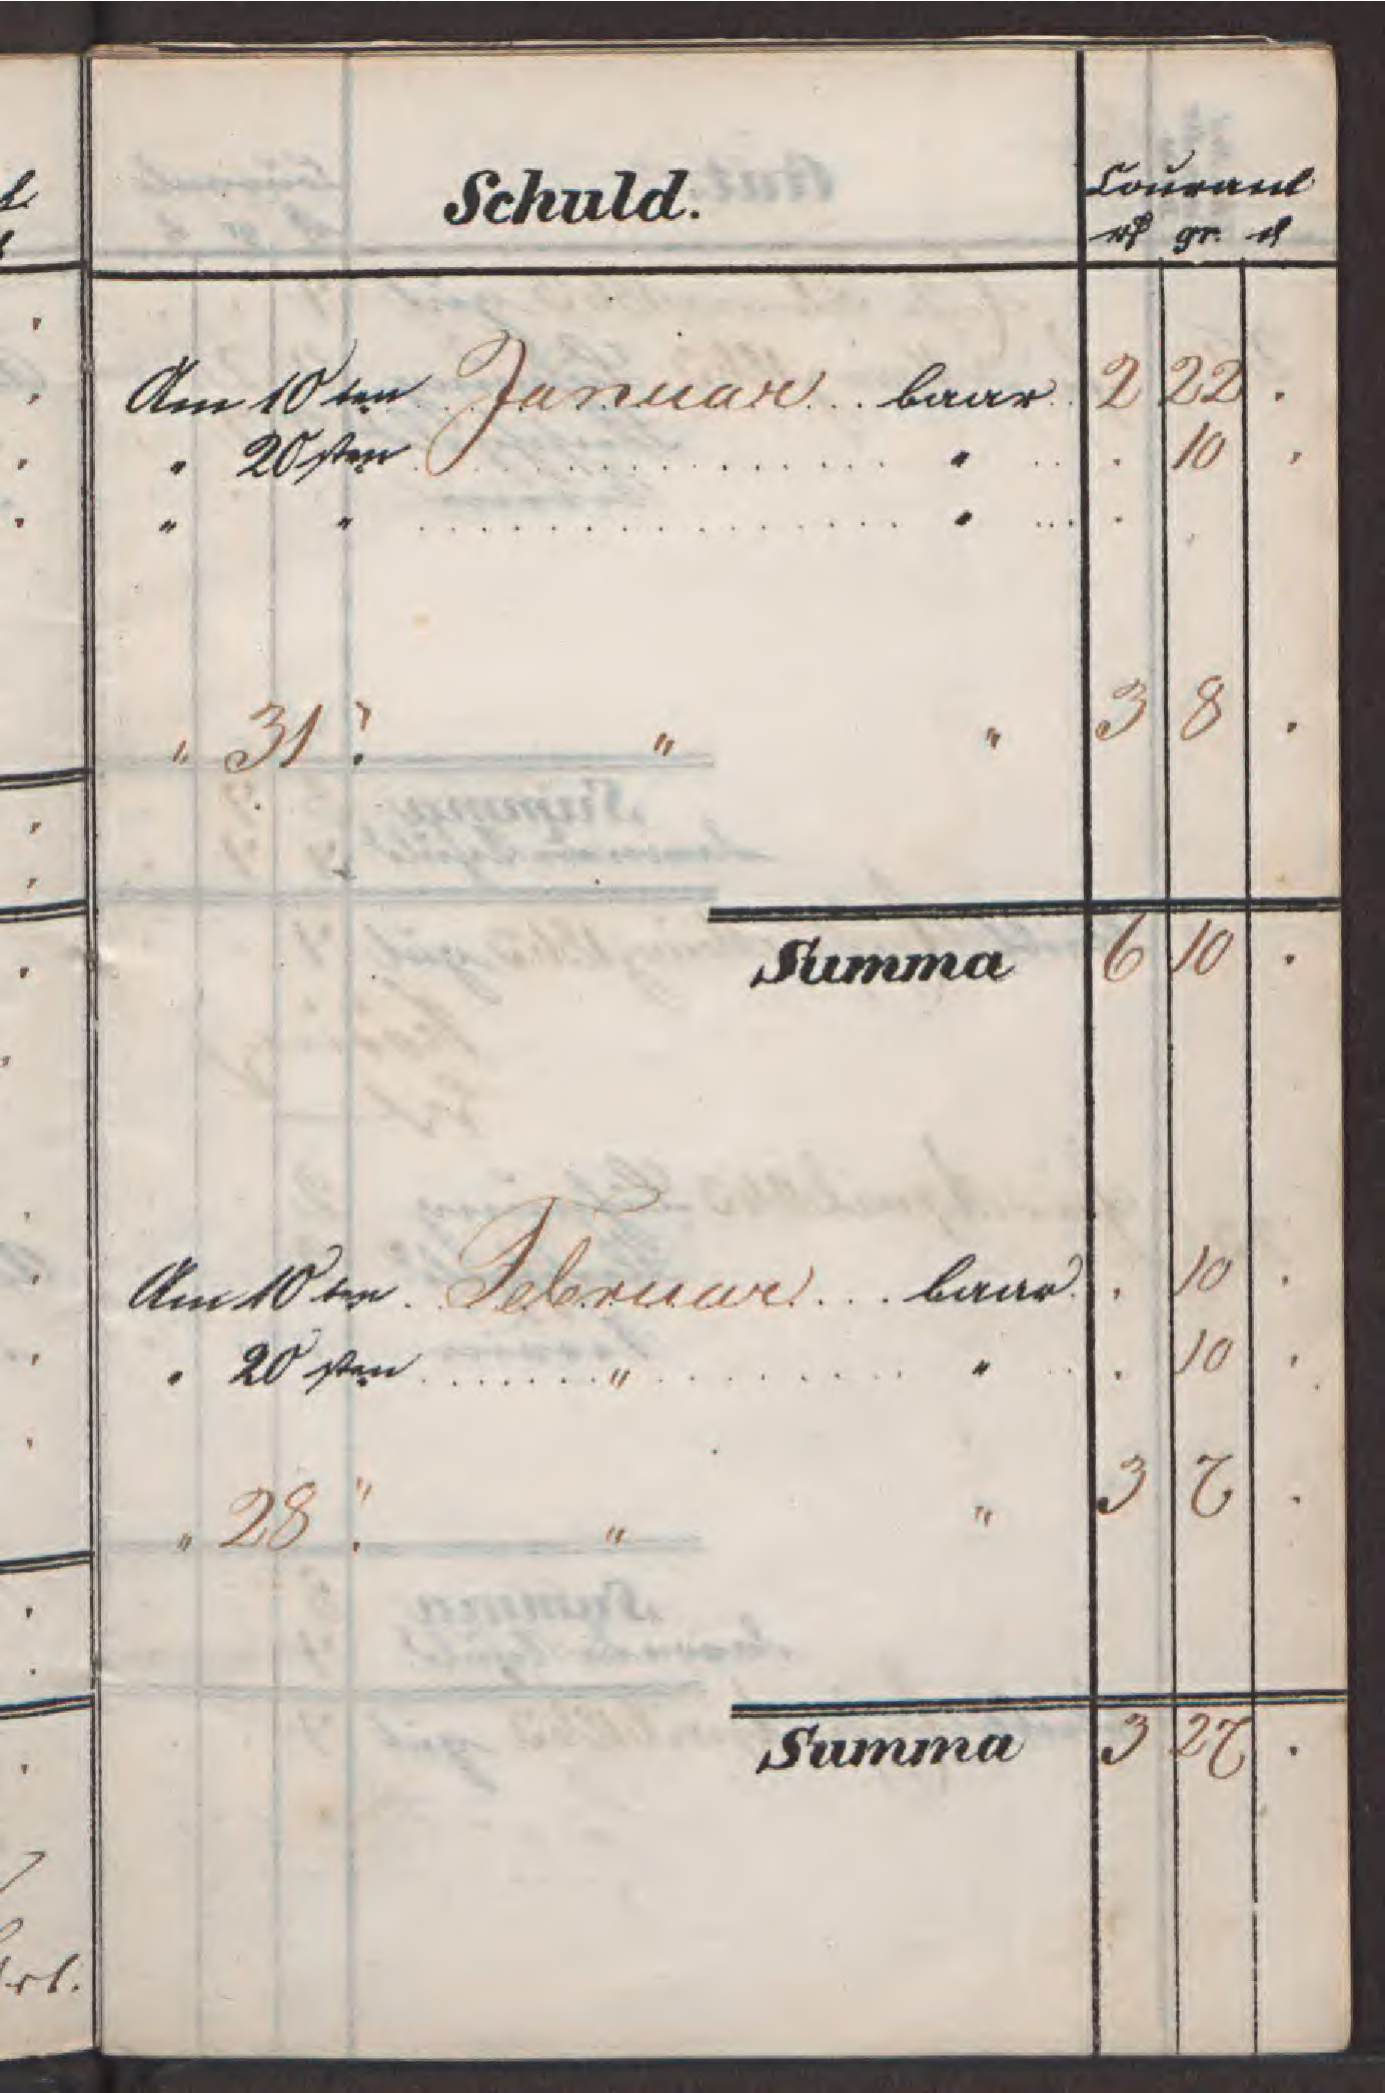 Schuld.
Courant
rℓ gr. ₰
Am 10ten Januar baar 2 22 .
" 20sten . . . . " . 10 .
" " . . . . " . .
" 31. " " 3 8 .
Summa 6 10 .
Am 10ten Februar baar . 10 .
" 20sten . . . " . . . " . 10 .
" 28. " " 3 7 .
Summa 3 27 .